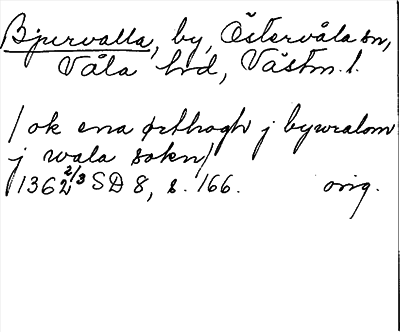 Bjurvalla, by, Östervåla sn,
Våla hd, Västm. l.
/ok ena ørthogh j bywralom
j wala sokn/
1362 2/3 SD 8, s. 166. orig.